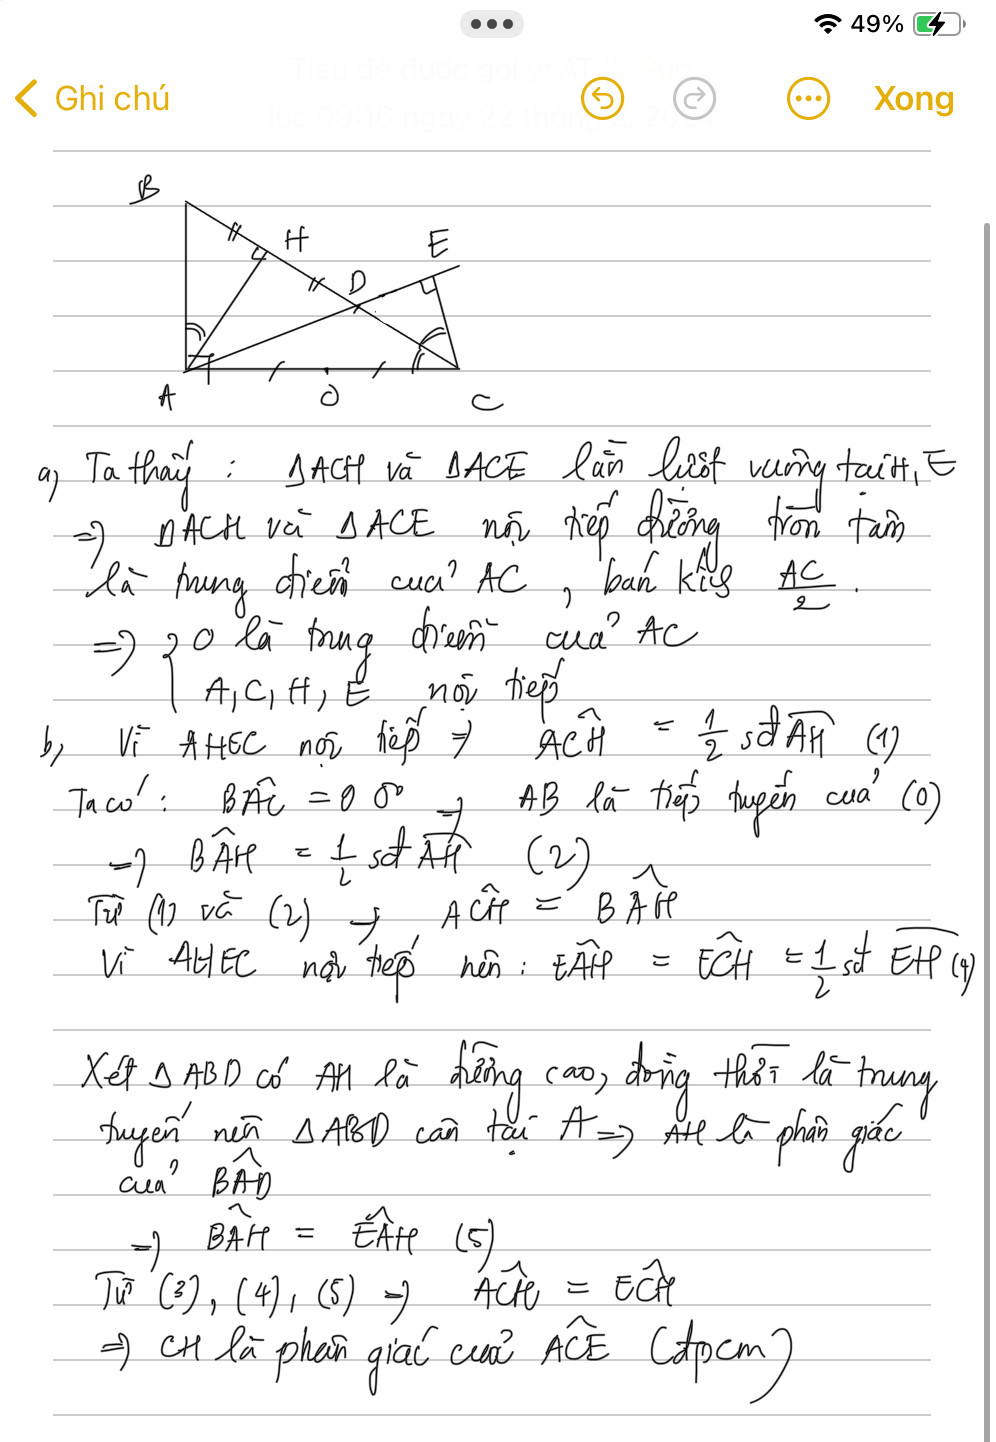 49%
Ghi chú
Xong
B
H
E
D
A
O
C
a, Ta thấy : ΔACH và ΔACE lần lượt vuông tại H, E
=> ΔACH và ΔACE nội tiếp đường tròn tâm
là trung điểm của AC , bán kính AC/2 .
=> { O là trung điểm của AC
A, C, H, E nội tiếp
b, Vì AHEC nội tiếp => ACH = 1/2 sđ AH (1)
Ta có : BAC = 90° => AB là tiếp tuyến của (O)
=> BAH = 1/2 sđ AH (2)
Từ (1) và (2) → ACH = BAH
Vì AHEC nội tiếp nên : EAH = ECH = 1/2 sđ EH (4)
Xét ΔABD có AH là đường cao, đồng thời là trung
tuyến nên ΔABD cân tại A => AH là phân giác
của BAD
=> BAH = EAH (5)
Từ (3), (4), (5) => ACH = ECH
=> CH là phân giác của ACE (đpcm)